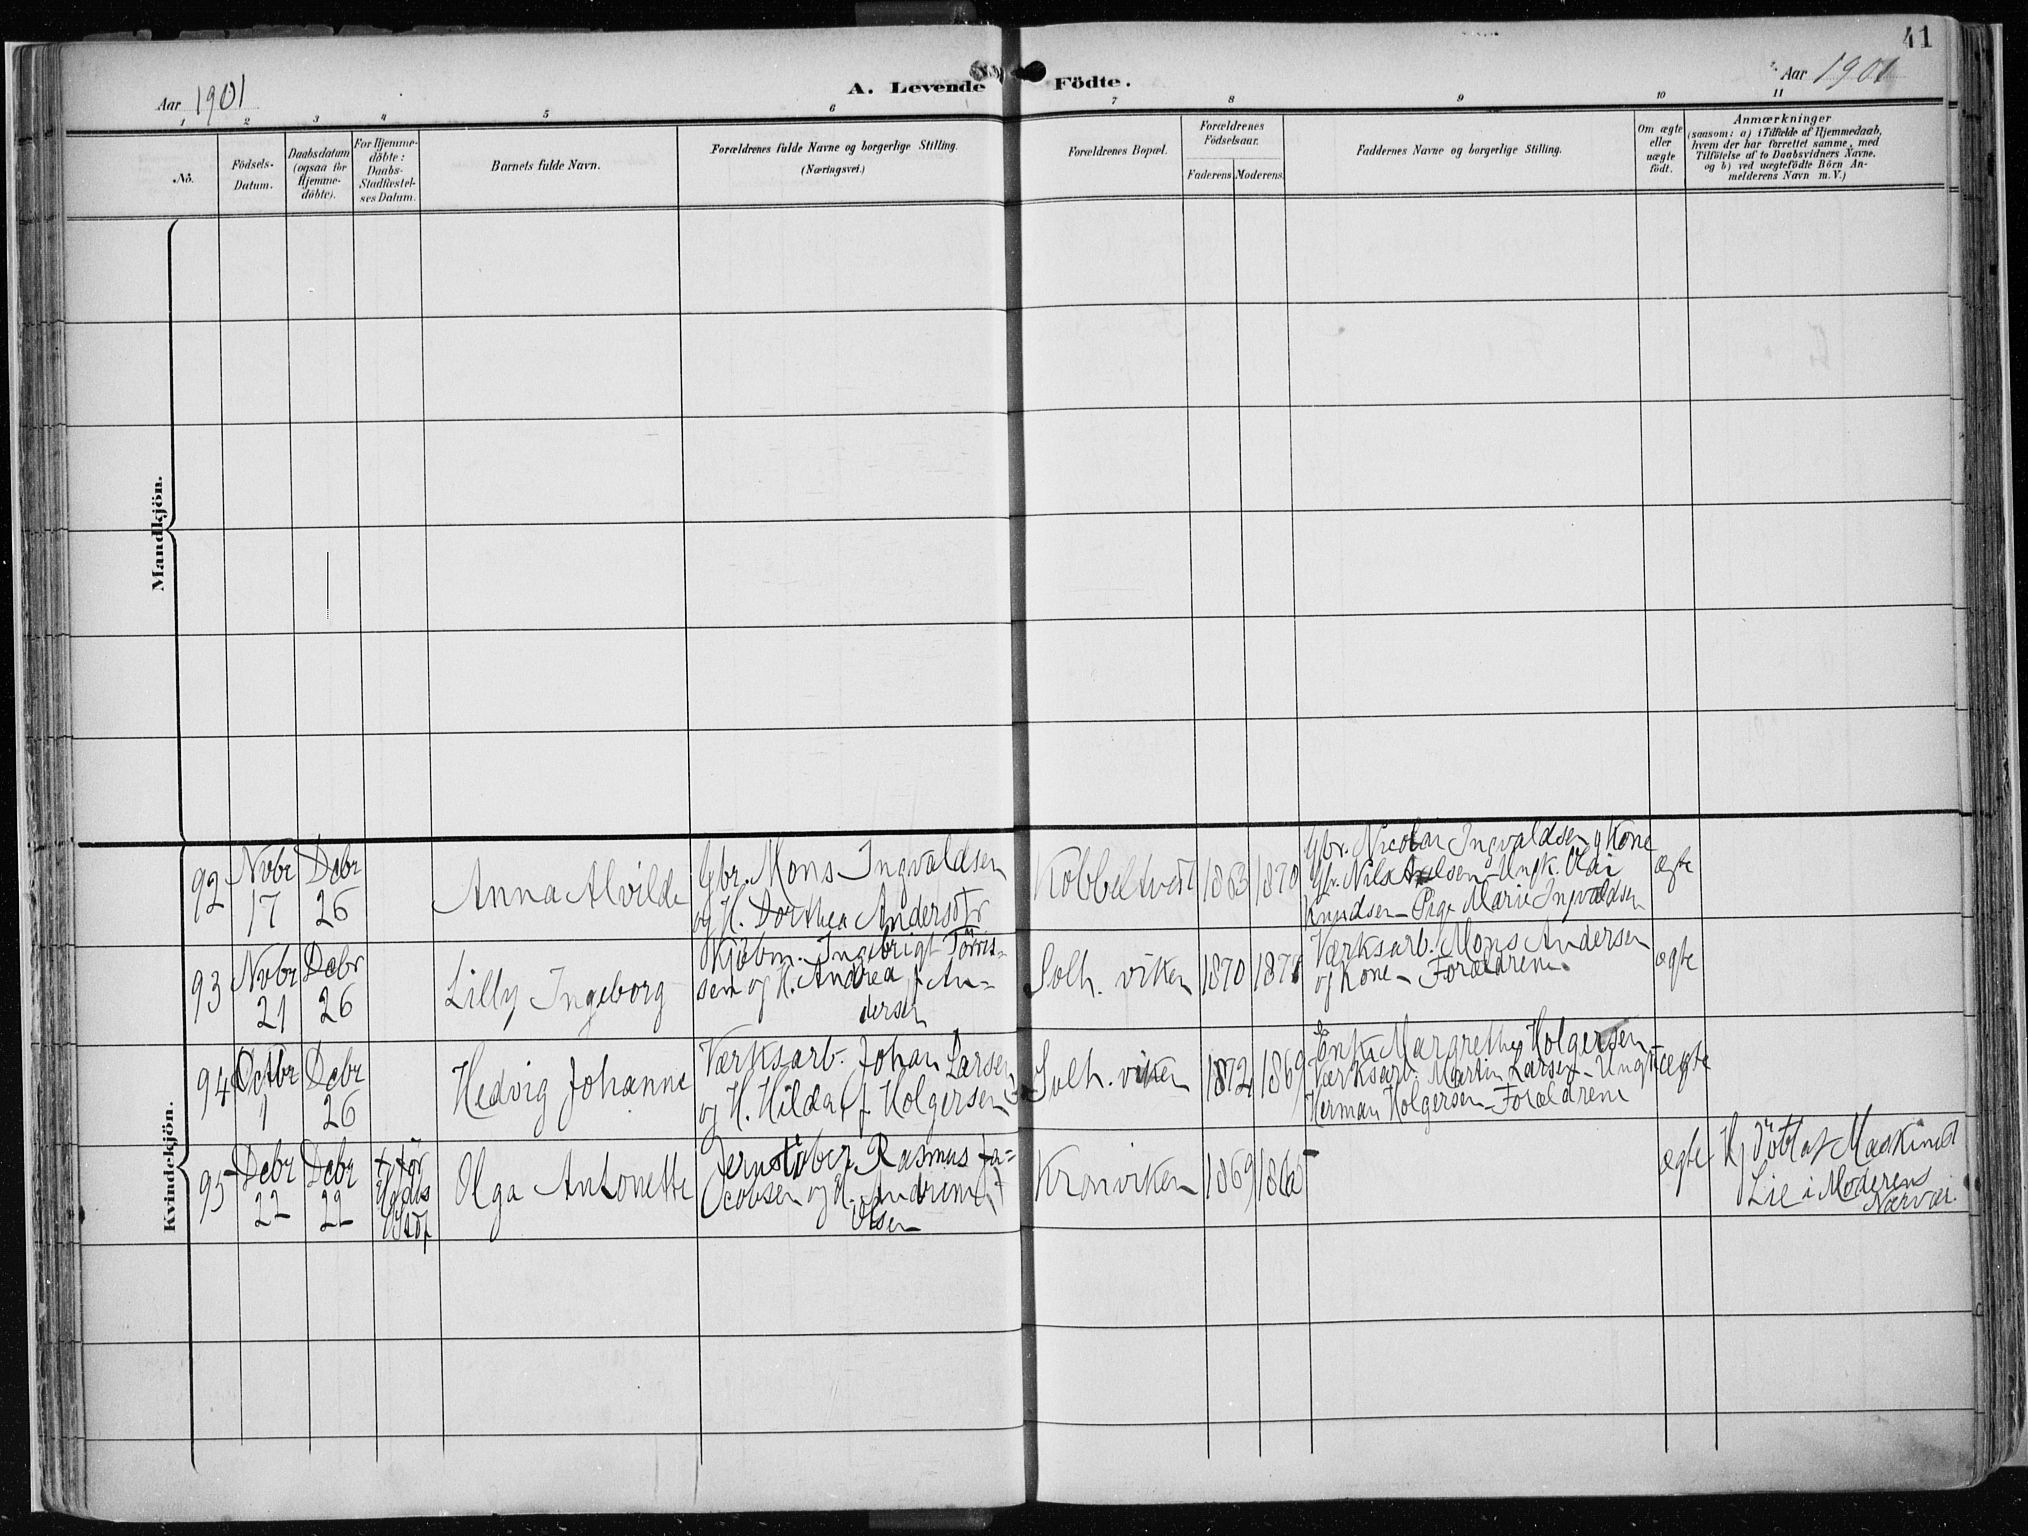 41
Aar 1901
A. Levende Födte.
Aar 1901
1 2 3 4 5 6 7 8 9 10 11
No.
Födsels-
Datum.
Daabsdatum
(ogsaa for
Hjemme-
döbte).
For Hjemme-
döbte:
Daabs-
Stadfæstel-
ses Datum.
Barnets fulde Navn.
Forældrenes fulde Navne og borgerlige Stilling.
(Næringsvei.)
Forældrenes Bopæl.
Forældrenes
Födselsaar.
Faderens Moderens
Faddernes Navne og borgerlige Stilling.
Om ægte
eller
uægte
født.
Anmærkninger
(saasom: a) i Tilfælde af Hjemmedaab,
hvem der har forrettet samme, med
Tilföielse af to Daabsvidners Navne.
og b) ved uægtefödte Börn An-
melderens Navn m. V.)
Mandkjön.
Kvindekjön.
92
Novbr
17
Debr
26
Anna Alvilde
Gbr. Mons Ingvaldsen
og H. Dorthea Andersdtr
Kobbeltvedt
1863
1870
Gbr. Nicolai Ingvaldsen og Kone
Gbr. Nils Axelsen - Ungk. Olai
Knudsen - Pige Marie Ingvaldsen
ægte
93
Novbr
21
Debr
26
Lilly Ingeborg
Kjöbm. Ingebrigt Törris-
sen og H. Andrea f. An-
dersen
Solh. viken
1870
1871
Værksarb. Mons Andersen
og Kone - Forældrene
ægte
94
Octbr
1
Debr
26
Hedvig Johanne
Værksarb. Johan Larsen
og H. Hilda f. Holgersen
Solh. viken
1872
1869
Enke Margrethe Holgersen
Værksarb. Martin Larsen - Ungk.
Herman Holgersen - Forældrene
ægte
95
Debr
22
Debr
22
Olga Antonette
Jernstöber Rasmus Ja-
cobsen og H. Andrine f.
Olsen
Kronviken
1869
1865
ægte
Hj. döbt af Maskinist
Lie i Moderens
Nærvær.